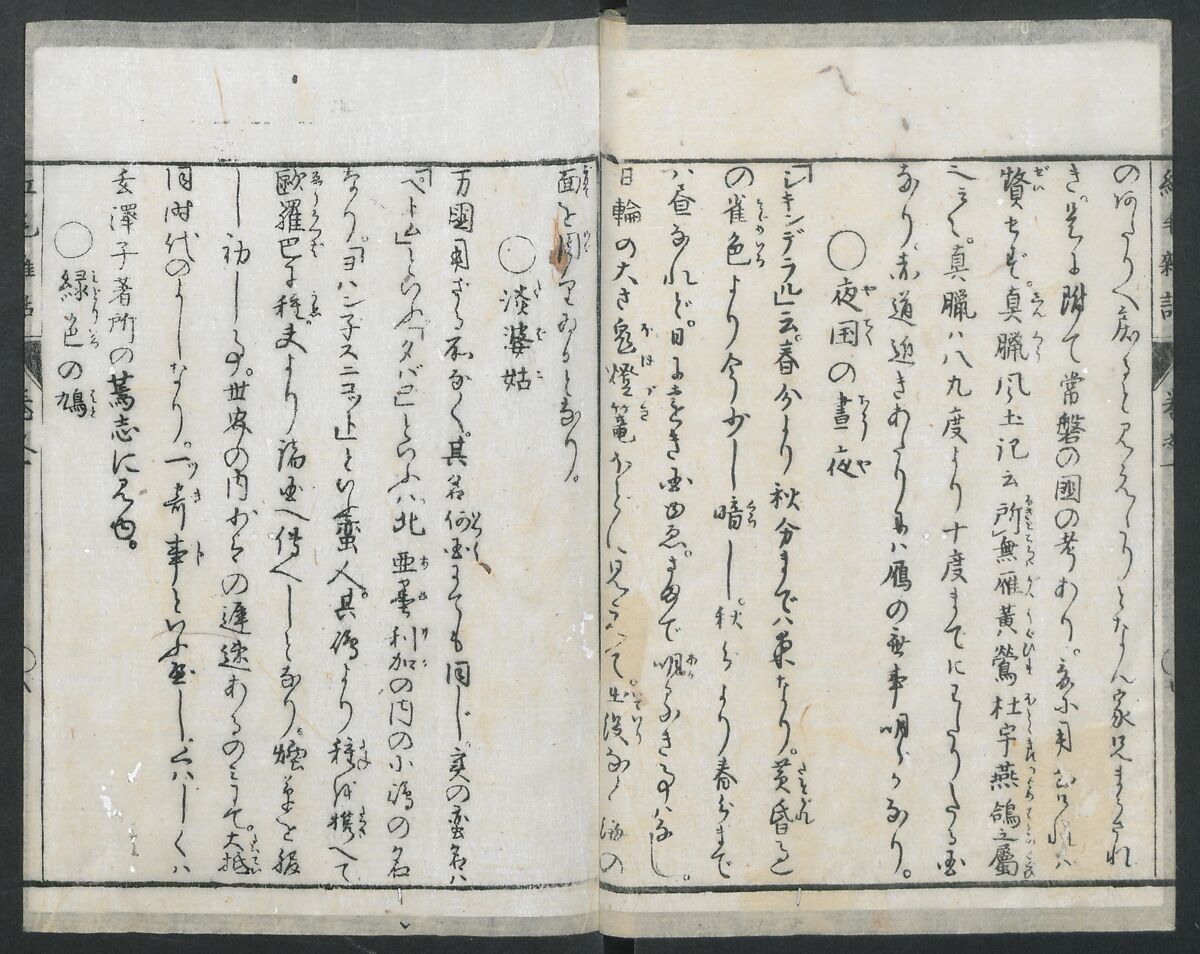 紅毛雑話
のあたりへ尿ると見えたりとなん家兄まうされ
き是に附て常磐の国の考あり玄に用なければ
贅せず真臘風土記云所無雁黄鶯杜宇燕鴿之属
云々真臘ハ八九度より十度までにわたりたる国
なり赤道近きあたりにハ雁の無事明らかなり
◯夜国の昼夜
「シキンデラル」云春分より秋分までハ東なり黄昏
の雀色より今少し暗し秋分より春分まで
ハ昼なれど日に遠き国ゆゑさまで明るき事ハなし
日輪の大さ鬼燈篭ほどに見えて出没なく海の
面を周りゐるとなり
◯淡婆姑
万国用ざる所なく其名何国にても同じ実の蛮名ハ
「ペトム」といふ「タバコ」といふハ北亜墨利加の内の小島の名
なり「ヨハン子スニコット」といふ蛮人其島より種を携へて
欧羅巴に種夫より諸国へ傳へしとなり烟草を服
し初しる世界の内少々の遅速あるのみにて大抵
同時代のよしなり一ッ奇事といふべしくハしくハ
玄澤子著所の蔫志に見ゆ
◯緑色の鳩